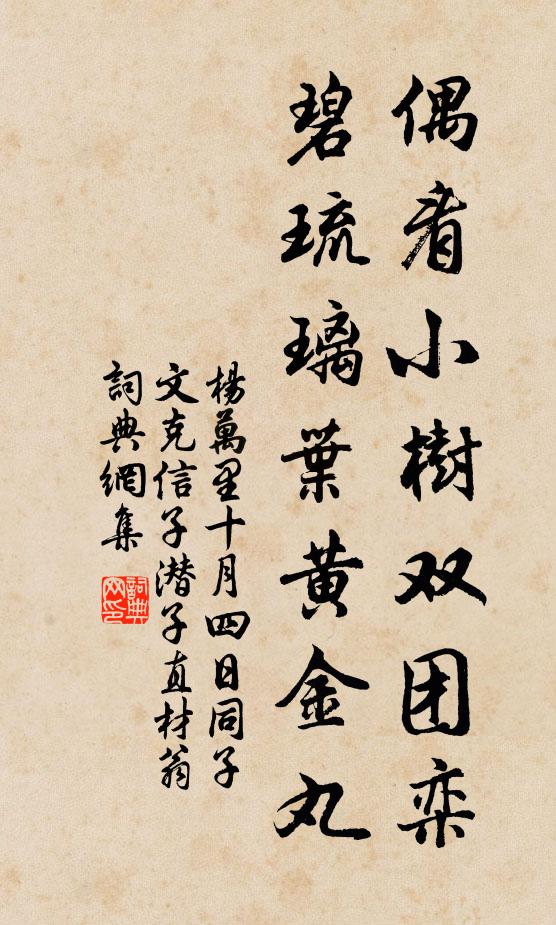 偶看小樹双团栾
碧琉璃葉黄金丸
楊萬里十月四日同子
文克信子潜子直材翁
詞典網集
詞典网印